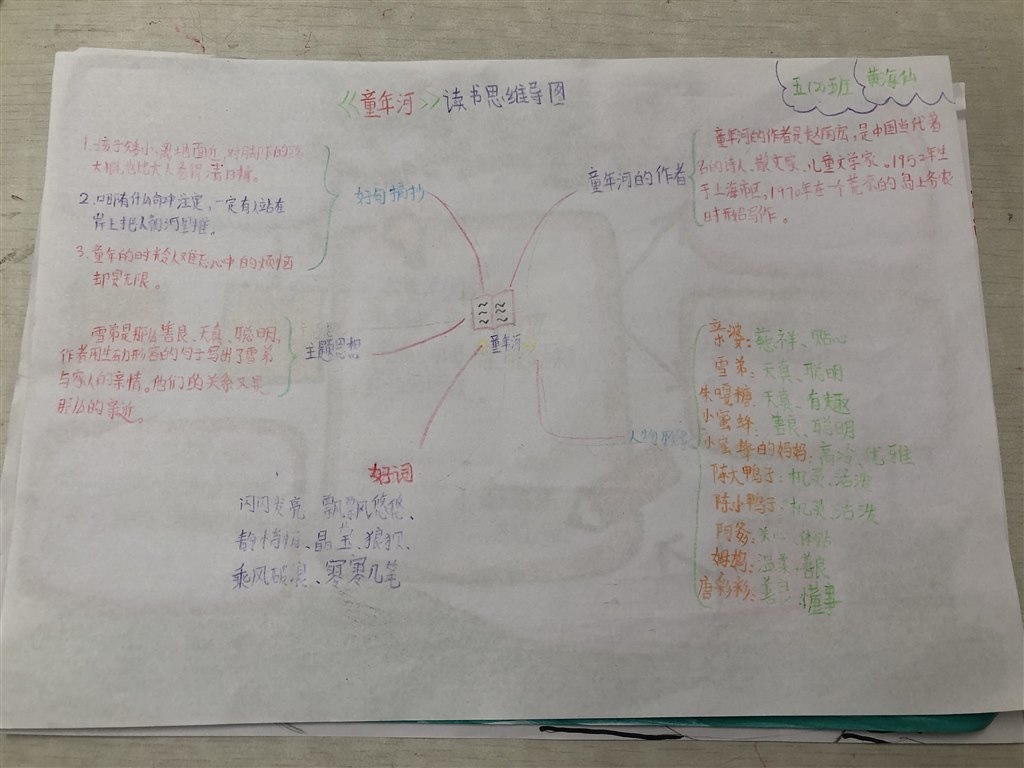 《童年河》读书思维导图
五(2)班 黄海仙
1.孩子矮小,离地面近,对脚下的
大人看得清楚。
2.冥冥有什么命中注定,一定有人站在
岸上把人往河里推。
3.童年的时光令人难忘心中的烦恼
却是无限。
好句摘抄
童年河的作者
童年河的作者是赵丽宏,是中国当代著
名的诗人、散文家、儿童文学家、1952年生
于上海市区,1970年在一个荒凉的岛上务农
时开始写作。
童年河
雪弟是那么善良、天真、聪明,
作者用生动形容的句子写出了雪弟
与家人的亲情。他们的关系又是
那么的亲近。
主题思想
人物
亲婆:慈祥、贴心
雪弟:天真、聪明
朱嘎糖:天真、有趣
小蜜蜂:善良、聪明
小蜜蜂的妈妈:高冷、优雅
陈大鸭子:机灵、活泼
陈小鸭子:机灵、活泼
阿爹:关心、体贴
姆妈:温柔、善良
唐彩彩:善良、懂事
好词
闪闪发亮 飘飘悠悠、
静悄悄、晶莹、狼狈、
乘风破浪、寥寥几笔